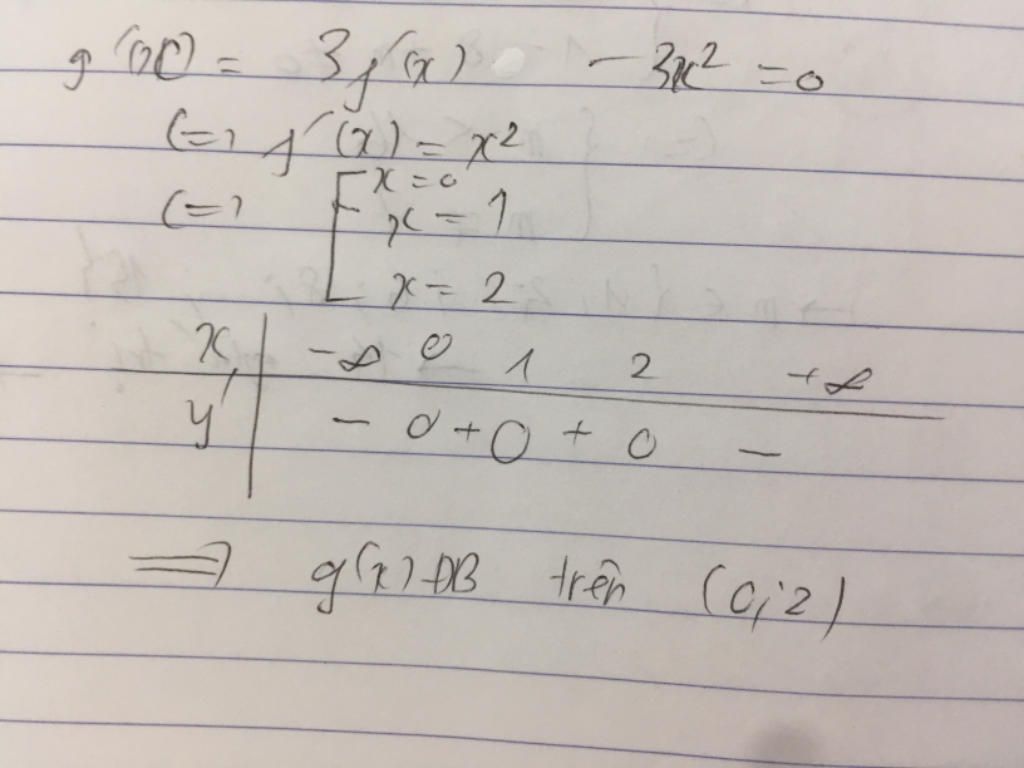 g'(x) = 3f'(x) - 3x² = 0
(=) f'(x) = x²
(=) [ x = 0
x = 1
x = 2
x -∞ 0 1 2 +∞
y' - 0 + 0 + 0 -
=> g(x) ĐB trên (0; 2)